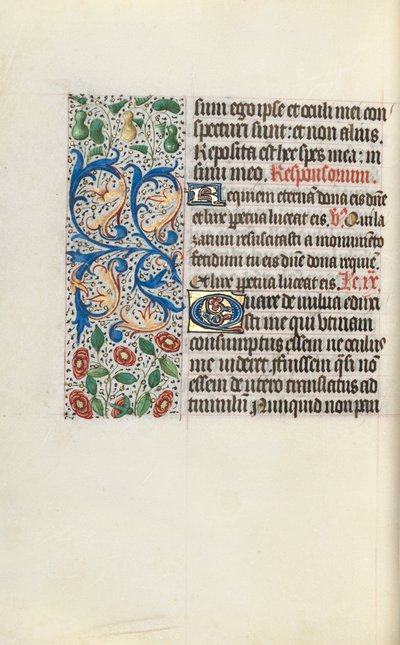 sum ego ipse et oculi mei con
specturi sunt: et non alius.
Reposita est hec spes mea: in
sinu meo. Responsorium.
Requiem eternam dona eis dne
et lux perpetua luceat eis. V. Qui la
zarum resuscitasti a monumeto
fendum tu eis dne dona requie.
Et lux perpetua luceat eis. Le. ix.
Quare de vulva eduxi
sti me qui utinam
consumptus essem ne oculus
me videret. fuissem qsi no
essem de utero translatus ad
tumulu Nunquid non pau